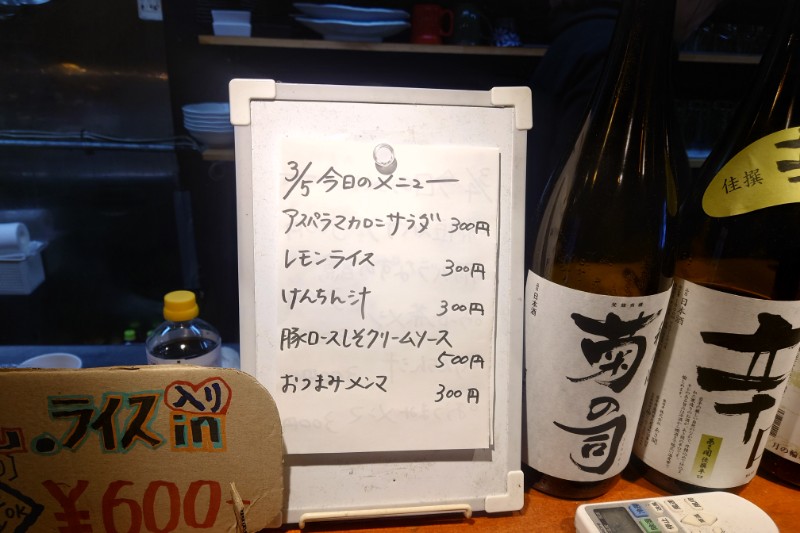 3/5 今日のメニュー
アスパラマカロニサラダ 300円
レモンライス 300円
けんちん汁 300円
豚ロースしそクリームソース
500円
おつまみメンマ 300円
ライス 入り in
¥600
OK
日本酒
菊の司
佳撰
日本酒
辛口